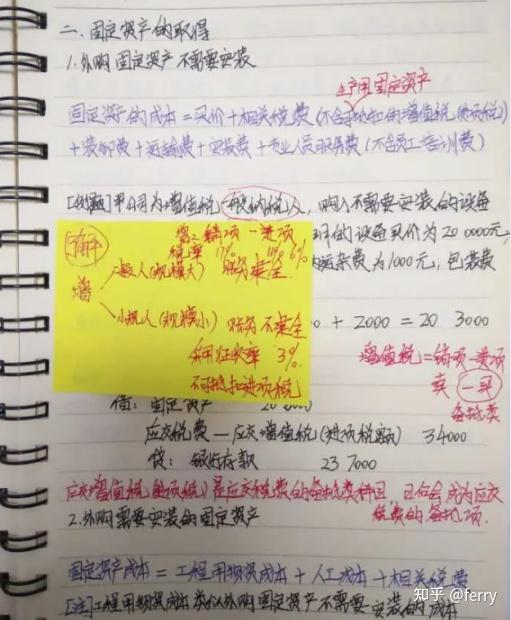 二、固定资产的取得
1.外购固定资产不需要安装
生产用固定资产
固定资产的成本=买价+相关税费(不含可抵扣的增值税进项税)
+装卸费+运输费+安装费+专业人员服务费(不含员工培训费)
[例题]甲公司为增值税一般纳税人,购入不需要安装的设备
的设备买价为20 0000元,
运杂费为1000元,包装费
[解]
增:销项-进项
税率 17% 11% 6%
增
一般人(规模大) 账务健全
小规人(规模小) 账务不健全
采用征收率 3%
不可抵扣进项税
+ 2000 = 20 3000
增值税=销项-进项
卖-买
备抵类
借:固定资产
应交税费—应交增值税(进项税额) 34000
贷:银行存款 23 7000
应交增值税(进项税)是应交税费的备抵类科目,
成为应交
税费的备抵项.
2.外购需要安装的固定资产
固定资产成本=工程用物资成本+人工成本+相关税费
[注]工程用物资成本类似外购固定资产不需要安装的成本
知乎 @ferry